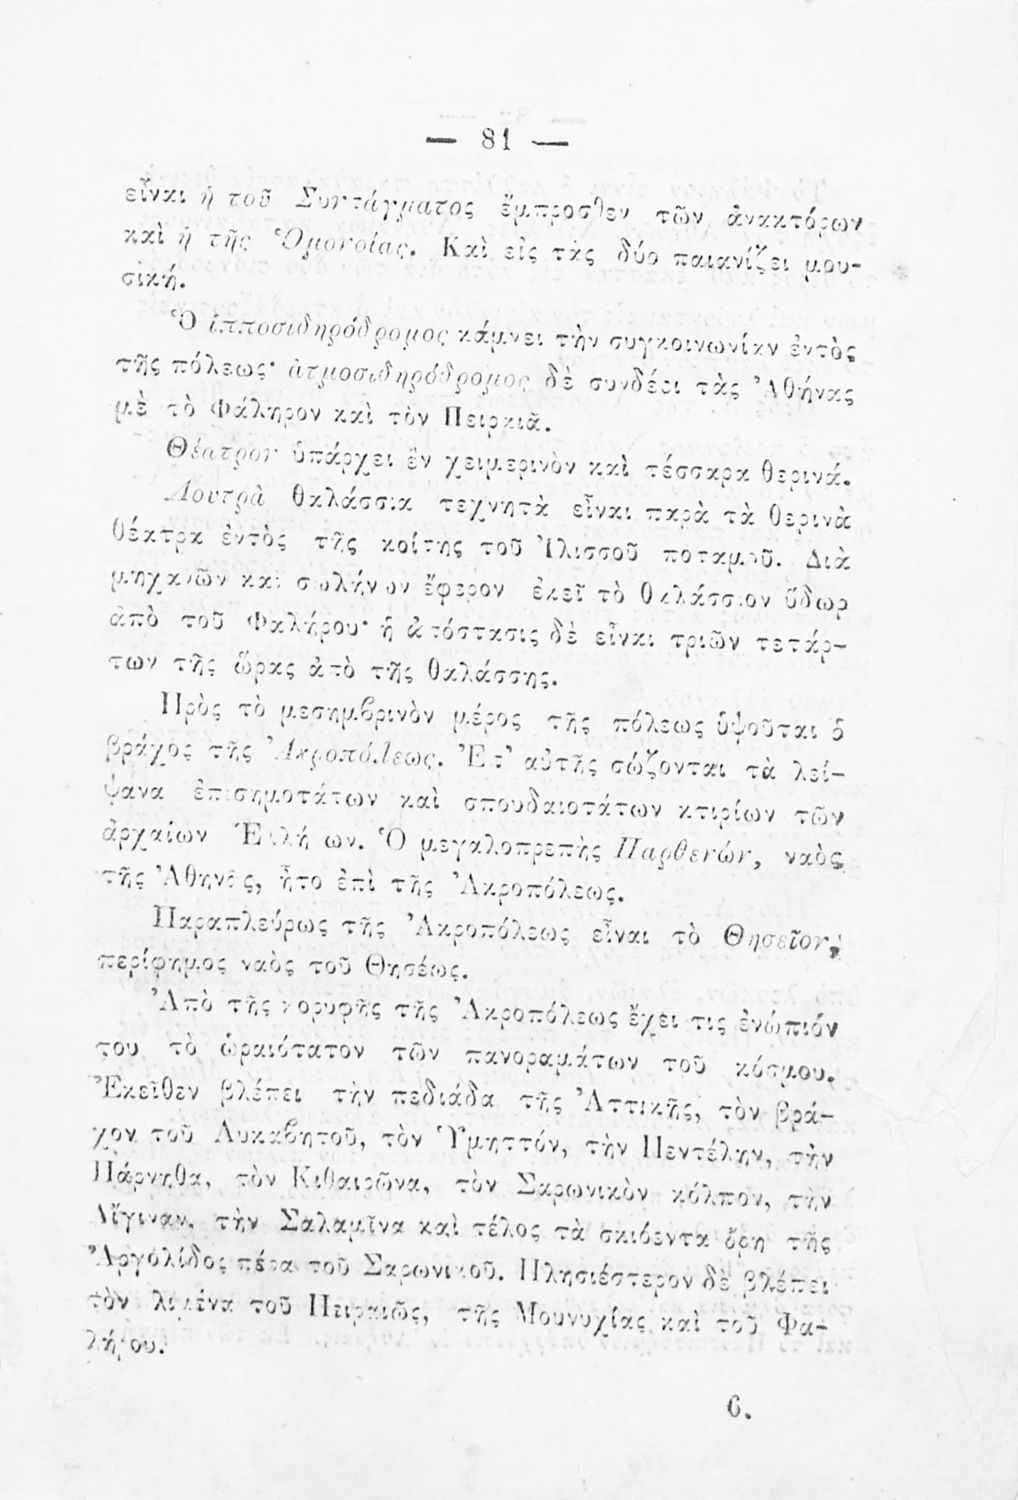 — 81 —
εἶναι ἡ τοῦ Συντάγματος ἔμπροσθεν τῶν ἀνακτόρων
καὶ ἡ τῆς Ὁμονοίας. Καὶ εἰς τὰς δύο παιανίζει μου-
σική.
Ὁ ἱπποσιδηρόδρομος κάμνει τὴν συγκοινωνίαν ἐντὸς
τῆς πόλεως· ἀτμοσιδηρόδρομος δὲ συνδέει τὰς Ἀθήνας
μὲ τὸ Φάληρον καὶ τὸν Πειραιᾶ.
Θέατρον ὑπάρχει ἓν χειμερινὸν καὶ τέσσαρα θερινά.
Λουτρὰ θαλάσσια τεχνητὰ εἶναι παρὰ τὰ θερινὰ
θέατρα ἐντὸς τῆς κοίτης τοῦ Ἰλισσοῦ ποταμοῦ. Διὰ
μηχανῶν καὶ σωλήνων ἔφερον ἐκεῖ τὸ θαλάσσιον ὕδωρ
ἀπὸ τοῦ Φαλήρου· ἡ ἀπόστασις δὲ εἶναι τριῶν τετάρ-
των τῆς ὥρας ἀπὸ τῆς θαλάσσης.
Πρὸς τὸ μεσημβρινὸν μέρος τῆς πόλεως ὑψοῦται ὁ
βράχος τῆς Ἀκροπόλεως. Ἐπ' αὐτῆς σώζονται τὰ λεί-
ψανα ἐπισημοτάτων καὶ σπουδαιοτάτων κτιρίων τῶν
ἀρχαίων Ἑλλήνων. Ὁ μεγαλοπρεπὴς Παρθενών, ναὸς
τῆς Ἀθηνᾶς, ἦτο ἐπὶ τῆς Ἀκροπόλεως.
Παραπλεύρως τῆς Ἀκροπόλεως εἶναι τὸ Θησεῖον,
περίφημος ναὸς τοῦ Θησέως.
Ἀπὸ τῆς κορυφῆς τῆς Ἀκροπόλεως ἔχει τις ἐνώπιόν
του τὸ ὡραιότατον τῶν πανοραμάτων τοῦ κόσμου.
Ἐκεῖθεν βλέπει τὴν πεδιάδα τῆς Ἀττικῆς, τὸν βρά-
χον τοῦ Λυκαβητοῦ, τὸν Ὑμηττόν, τὴν Πεντέλην, τὴν
Πάρνηθα, τὸν Κιθαιρῶνα, τὸν Σαρωνικὸν κόλπον, τὴν
Αἴγιναν, τὴν Σαλαμῖνα καὶ τέλος τὰ σκιόεντα ὄρη τῆς
Ἀργολίδος πέρα τοῦ Σαρωνικοῦ. Πλησιέστερον δὲ βλέπει
τὸν λιμένα τοῦ Πειραιῶς, τῆς Μουνυχίας καὶ τοῦ Φα-
λήρου.
6.